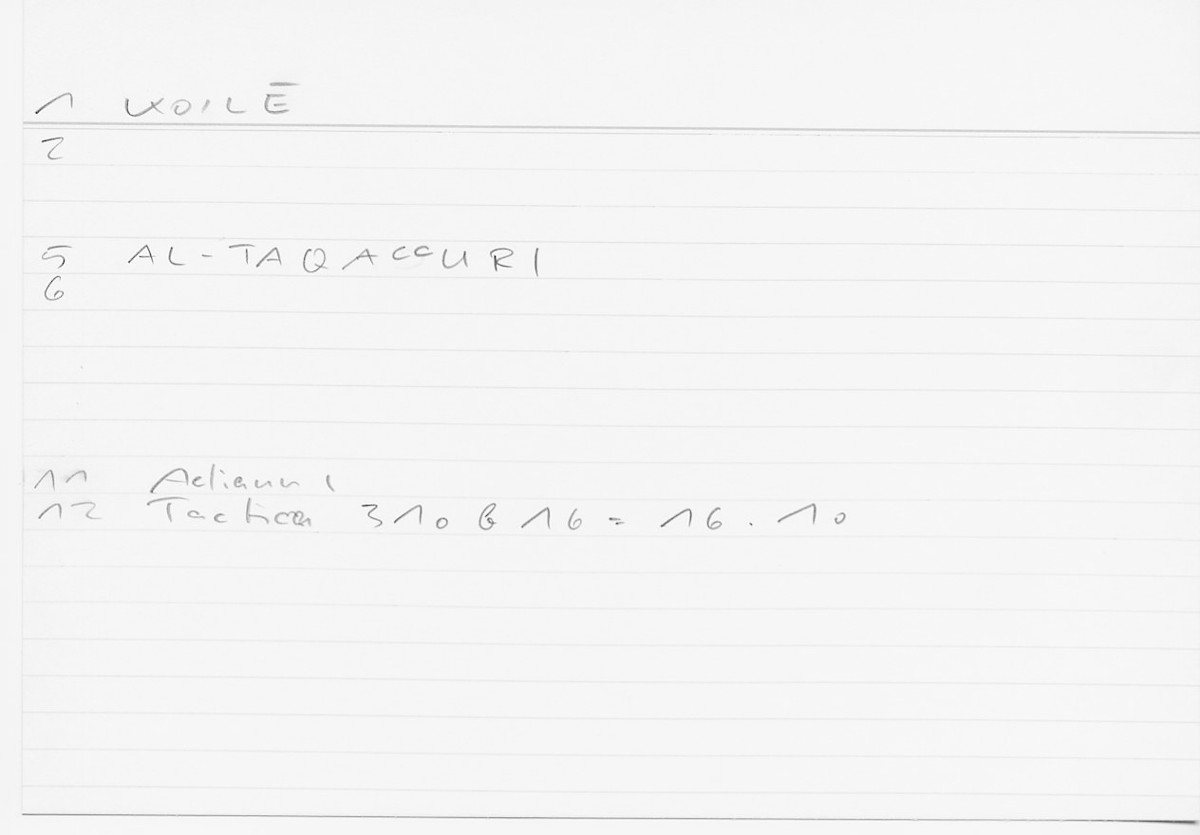 1 KOILĒ
2
5 AL-TAQACCURI
6
11 Aeliani
12 Tactica 310 b 16 = 16.10